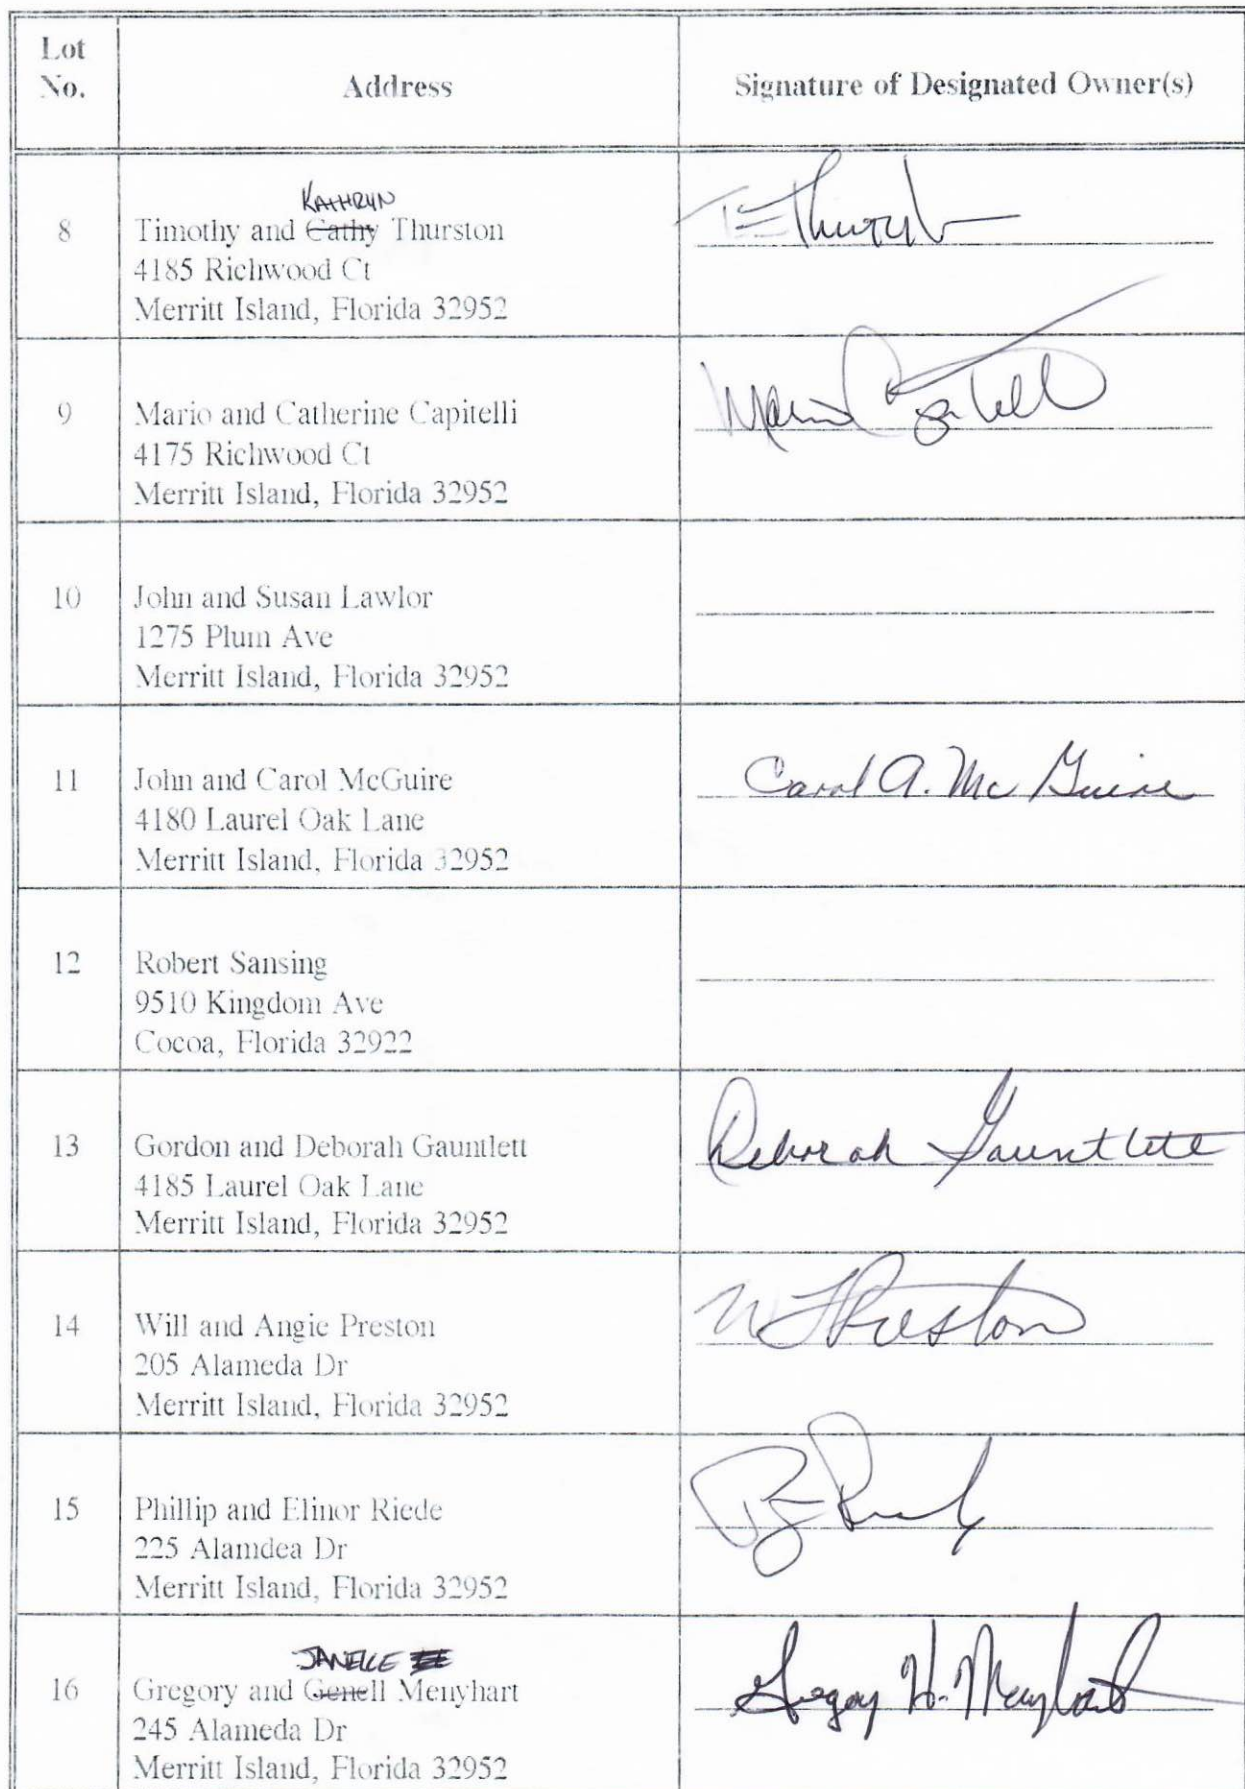 Lot
No.
Address
Signature of Designated Owner(s)
8
KATHRYN
Timothy and Cathy Thurston
4185 Richwood Ct
Merritt Island, Florida 32952
TE Thurston
9
Mario and Catherine Capitelli
4175 Richwood Ct
Merritt Island, Florida 32952
Mario Capitelli
10
John and Susan Lawlor
1275 Plum Ave
Merritt Island, Florida 32952
11
John and Carol McGuire
4180 Laurel Oak Lane
Merritt Island, Florida 32952
Carol A. McGuire
12
Robert Sansing
9510 Kingdom Ave
Cocoa, Florida 32922
13
Gordon and Deborah Gauntlett
4185 Laurel Oak Lane
Merritt Island, Florida 32952
Deborah Gauntlett
14
Will and Angie Preston
205 Alameda Dr
Merritt Island, Florida 32952
Preston
15
Phillip and Elinor Riede
225 Alamdea Dr
Merritt Island, Florida 32952
16
JANELLE
Gregory and Genell Menyhart
245 Alameda Dr
Merritt Island, Florida 32952
Gregory H. Menyhart